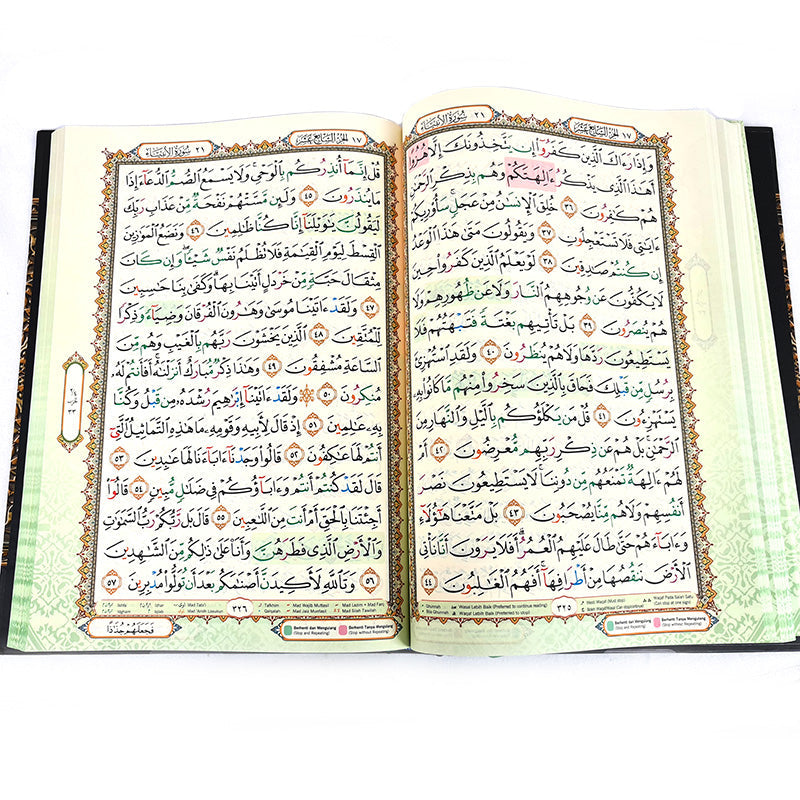 ١٧ الجزء السابع عشر
سورة الأنبياء ٢١
وَإِذَا رَءَاكَ ٱلَّذِينَ كَفَرُوٓا۟ إِن يَتَّخِذُونَكَ إِلَّا هُزُوًا
أَهَٰذَا ٱلَّذِى يَذْكُرُ ءَالِهَتَكُمْ وَهُم بِذِكْرِ ٱلرَّحْمَٰنِ
هُمْ كَٰفِرُونَ ٣٦ خُلِقَ ٱلْإِنسَٰنُ مِنْ عَجَلٍ سَأُو۟رِيكُمْ
ءَايَٰتِى فَلَا تَسْتَعْجِلُونِ ٣٧ وَيَقُولُونَ مَتَىٰ هَٰذَا ٱلْوَعْدُ
إِن كُنتُمْ صَٰدِقِينَ ٣٨ لَوْ يَعْلَمُ ٱلَّذِينَ كَفَرُوا۟ حِينَ
لَا يَكُفُّونَ عَن وُجُوهِهِمُ ٱلنَّارَ وَلَا عَن ظُهُورِهِمْ وَلَا
هُمْ يُنصَرُونَ ٣٩ بَلْ تَأْتِيهِم بَغْتَةً فَتَبْهَتُهُمْ فَلَا
يَسْتَطِيعُونَ رَدَّهَا وَلَا هُمْ يُنظَرُونَ ٤٠ وَلَقَدِ ٱسْتُهْزِئَ
بِرُسُلٍ مِّن قَبْلِكَ فَحَاقَ بِٱلَّذِينَ سَخِرُوا۟ مِنْهُم مَّا كَانُوا۟ بِهِۦ
يَسْتَهْزِءُونَ ٤١ قُلْ مَن يَكْلَؤُكُم بِٱلَّيْلِ وَٱلنَّهَارِ مِنَ
ٱلرَّحْمَٰنِ بَلْ هُمْ عَن ذِكْرِ رَبِّهِم مُّعْرِضُونَ ٤٢ أَمْ
لَهُمْ ءَالِهَةٌ تَمْنَعُهُم مِّن دُونِنَا لَا يَسْتَطِيعُونَ نَصْرَ
أَنفُسِهِمْ وَلَا هُم مِّنَّا يُصْحَبُونَ ٤٣ بَلْ مَتَّعْنَا هَٰٓؤُلَآءِ
وَءَابَآءَهُمْ حَتَّىٰ طَالَ عَلَيْهِمُ ٱلْعُمُرُ أَفَلَا يَرَوْنَ أَنَّا نَأْتِى
ٱلْأَرْضَ نَنقُصُهَا مِنْ أَطْرَافِهَآ أَفَهُمُ ٱلْغَٰلِبُونَ ٤٤
٣٢٥
Berhenti dan Mengulang
(Stop and Repeating)
Berhenti Tanpa Mengulang
(Stop without Repeating)
١٧ الجزء السابع عشر
سورة الأنبياء ٢١
قُلْ إِنَّمَآ أُنذِرُكُم بِٱلْوَحْىِ وَلَا يَسْمَعُ ٱلصُّمُّ ٱلدُّعَآءَ إِذَا
مَا يُنذَرُونَ ٤٥ وَلَئِن مَّسَّتْهُمْ نَفْحَةٌ مِّنْ عَذَابِ رَبِّكَ
لَيَقُولُنَّ يَٰوَيْلَنَآ إِنَّا كُنَّا ظَٰلِمِينَ ٤٦ وَنَضَعُ ٱلْمَوَٰزِينَ
ٱلْقِسْطَ لِيَوْمِ ٱلْقِيَٰمَةِ فَلَا تُظْلَمُ نَفْسٌ شَيْـًٔا وَإِن كَانَ
مِثْقَالَ حَبَّةٍ مِّنْ خَرْدَلٍ أَتَيْنَا بِهَا وَكَفَىٰ بِنَا حَٰسِبِينَ
٤٧ وَلَقَدْ ءَاتَيْنَا مُوسَىٰ وَهَٰرُونَ ٱلْفُرْقَانَ وَضِيَآءً وَذِكْرًا
لِّلْمُتَّقِينَ ٤٨ ٱلَّذِينَ يَخْشَوْنَ رَبَّهُم بِٱلْغَيْبِ وَهُم مِّنَ
ٱلسَّاعَةِ مُشْفِقُونَ ٤٩ وَهَٰذَا ذِكْرٌ مُّبَارَكٌ أَنزَلْنَٰهُ أَفَأَنتُمْ لَهُۥ
مُنكِرُونَ ٥٠ وَلَقَدْ ءَاتَيْنَآ إِبْرَٰهِيمَ رُشْدَهُۥ مِن قَبْلُ وَكُنَّا
بِهِۦ عَٰلِمِينَ ٥١ إِذْ قَالَ لِأَبِيهِ وَقَوْمِهِۦ مَا هَٰذِهِ ٱلتَّمَاثِيلُ ٱلَّتِىٓ
أَنتُمْ لَهَا عَٰكِفُونَ ٥٢ قَالُوا۟ وَجَدْنَآ ءَابَآءَنَا لَهَا عَٰبِدِينَ ٥٣
قَالَ لَقَدْ كُنتُمْ أَنتُمْ وَءَابَآؤُكُمْ فِى ضَلَٰلٍ مُّبِينٍ ٥٤ قَالُوٓا۟
أَجِئْتَنَا بِٱلْحَقِّ أَمْ أَنتَ مِنَ ٱللَّٰعِبِينَ ٥٥ قَالَ بَل رَّبُّكُمْ رَبُّ ٱلسَّمَٰوَٰتِ
وَٱلْأَرْضِ ٱلَّذِى فَطَرَهُنَّ وَأَنَا۠ عَلَىٰ ذَٰلِكُم مِّنَ ٱلشَّٰهِدِينَ
٥٦ وَتَٱللَّهِ لَأَكِيدَنَّ أَصْنَٰمَكُم بَعْدَ أَن تُوَلُّوا۟ مُدْبِرِينَ ٥٧
٣٢٦
فَجَعَلَهُمْ جُذَٰذًا
Berhenti dan Mengulang
(Stop and Repeating)
Berhenti Tanpa Mengulang
(Stop without Repeating)